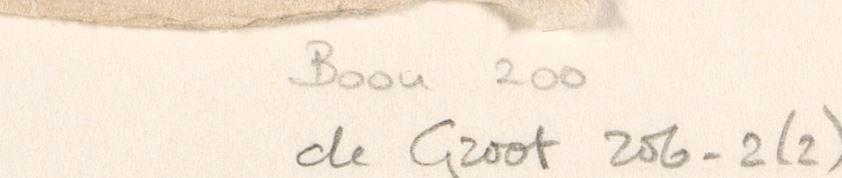 Boon 200
de Groot 206-2(2)